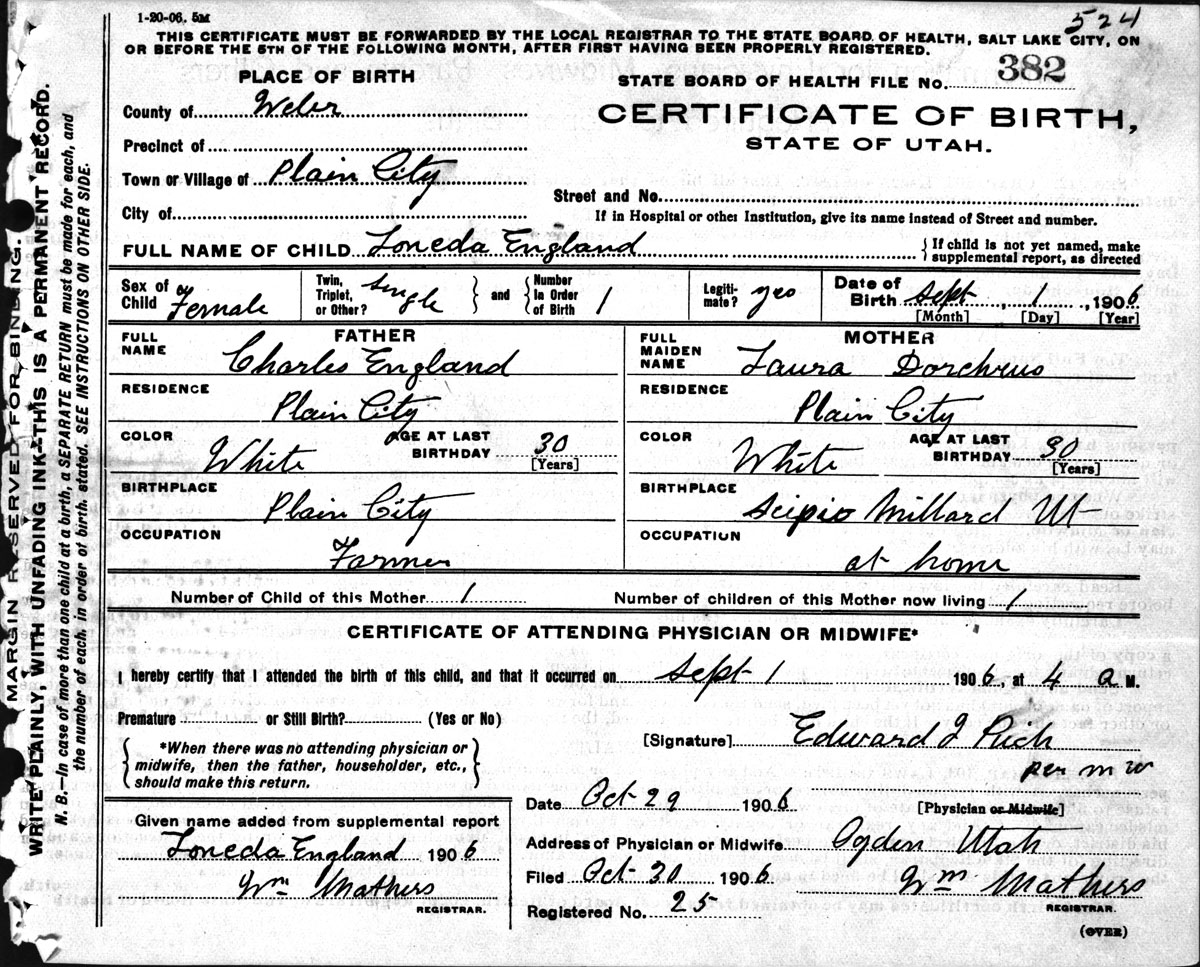 1-20-06. 5M
524
THIS CERTIFICATE MUST BE FORWARDED BY THE LOCAL REGISTRAR TO THE STATE BOARD OF HEALTH, SALT LAKE CITY, ON
OR BEFORE THE 5TH OF THE FOLLOWING MONTH, AFTER FIRST HAVING BEEN PROPERLY REGISTERED.
PLACE OF BIRTH
STATE BOARD OF HEALTH FILE No. 382
County of Weber
CERTIFICATE OF BIRTH,
STATE OF UTAH.
Precinct of
Town or Village of Plain City
Street and No.
City of
If in Hospital or other Institution, give its name instead of Street and number.
FULL NAME OF CHILD Loneda England { If child is not yet named, make
supplemental report, as directed
Sex of Child Female
Twin, Triplet, or Other? Single } and { Number in Order of Birth 1
Legitimate? yes
Date of Birth Sept, 1, 1906
[Month] [Day] [Year]
FATHER
FULL NAME Charles England
MOTHER
FULL MAIDEN NAME Laura
RESIDENCE Plain City
RESIDENCE Plain City
COLOR White AGE AT LAST BIRTHDAY 30 [Years]
COLOR White AGE AT LAST BIRTHDAY 30 [Years]
BIRTHPLACE Plain City
BIRTHPLACE Scipio Millard Ut
OCCUPATION Farmer
OCCUPATION at home
Number of Child of this Mother 1
Number of children of this Mother now living 1
CERTIFICATE OF ATTENDING PHYSICIAN OR MIDWIFE*
I hereby certify that I attended the birth of this child, and that it occurred on Sept 1 1906, at 4 a M.
Premature or Still Birth? (Yes or No)
{ *When there was no attending physician or
midwife, then the father, householder, etc.,
should make this return. }
[Signature] Edward J Rich
per m w
Date Oct 29 1906 [Physician or Midwife]
Given name added from supplemental report
Loneda England 1906
Wm Mathers
REGISTRAR.
Address of Physician or Midwife Ogden Utah
Filed Oct 30 1906 Wm Mathers
REGISTRAR.
Registered No. 25
(OVER)
MARGIN RESERVED FOR BINDING.
WRITE PLAINLY, WITH UNFADING INK—THIS IS A PERMANENT RECORD.
N. B.—In case of more than one child at a birth, a SEPARATE RETURN must be made for each, and
the number of each, in order of birth, stated. SEE INSTRUCTIONS ON OTHER SIDE.